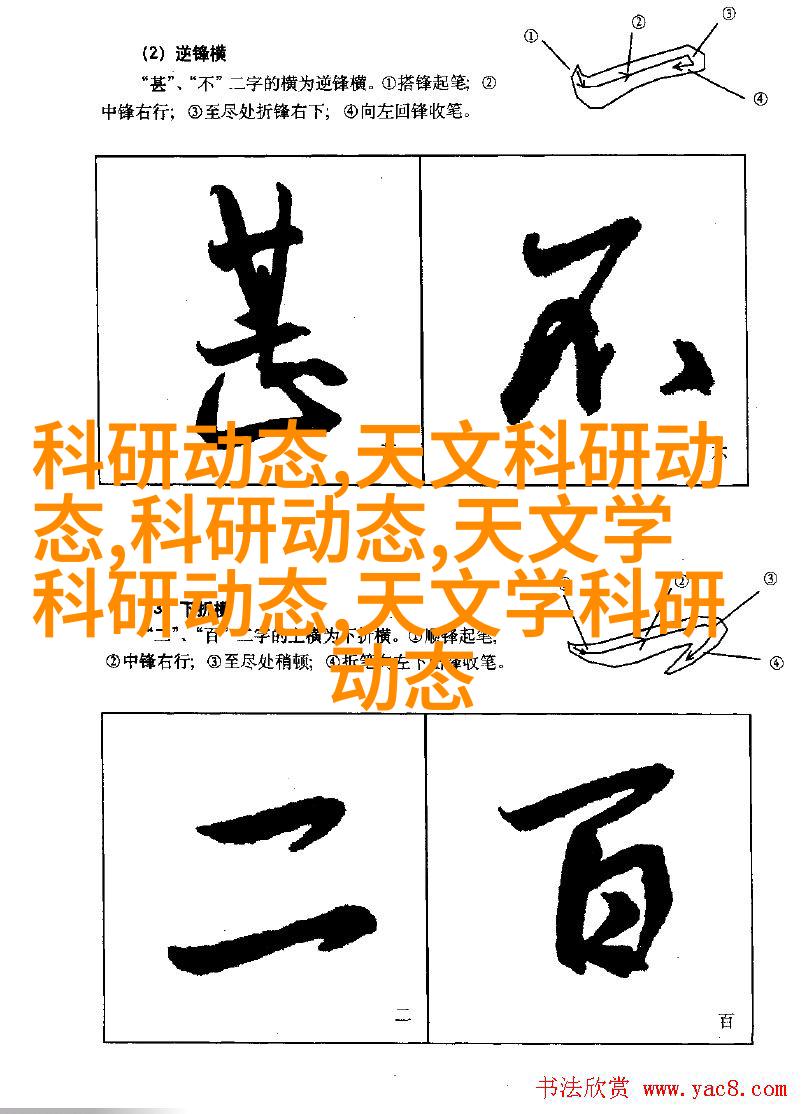 ①
②
③
④
(2) 逆锋横
“甚”、“不”二字的横为逆锋横。①搭锋起笔；②
中锋右行；③至尽处折锋右下；④向左回锋收笔。
甚 不
不
科研动态,天文科研动
态,科研动态,天文学
科研动态,天文学科研
动态
下折横
②
③
④
“二”、“百”二字的上横为下折横。①顺锋起笔；
②中锋右行；③至尽处稍顿；④折笔向左下回锋收笔。
二 百
二
百
书法欣赏 www.yac8.com